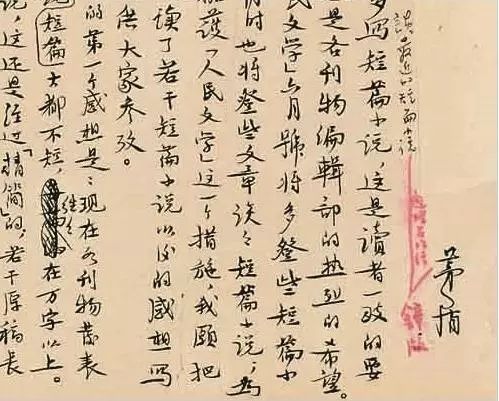 談最近的短篇小说
茅盾
鋅版
多写短篇小说,这是讀者一致的要
是各刊物编輯部的热烈的希望。
民文学」六月號将多登些短篇小
时也将登些文章谈々短篇小说,为
護「人民文学」这一个措施,我願把
读了若干短篇小说以後的感想写
供大家参攷。
的第一个感想是:现在各刊物發表
短篇大都不短,往往在万字以上。
说,这还是经过「精简」的,若干原稿長